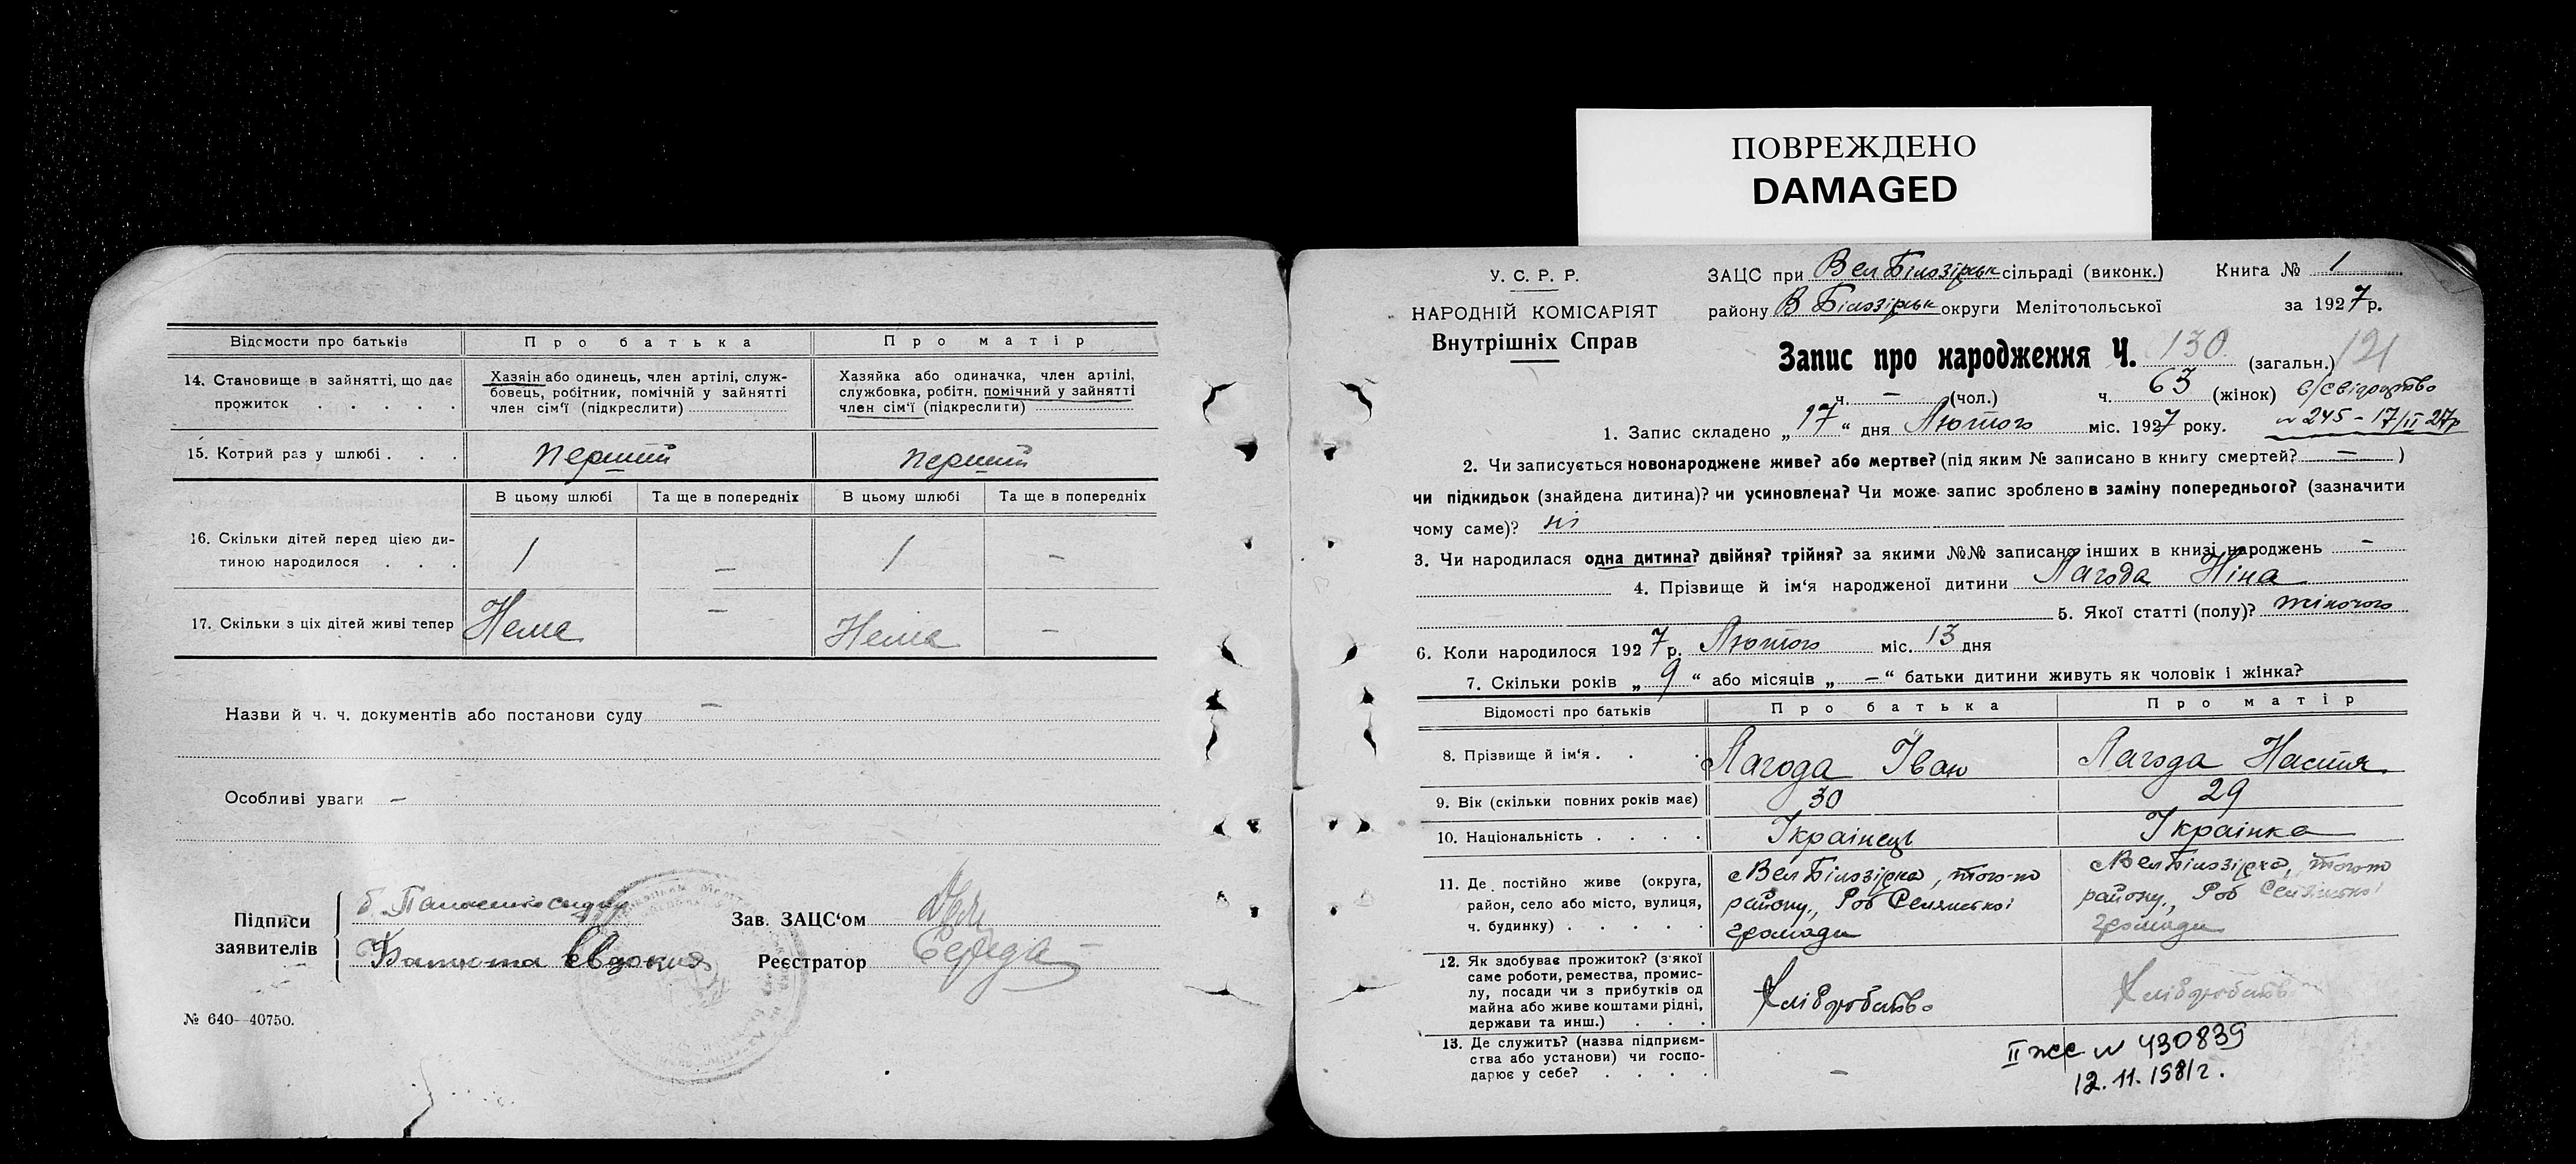 ПОВРЕЖДЕНО
DAMAGED
Відомости про батьків
Про батька
Про матір
14. Становище в зайнятті, що дає
прожиток . . . . .
Хазяїн або одинець, член артілі, служ-
бовець, робітник, помічній у зайнятті
член сім'ї (підкреслити)
Хазяйка або одиначка, член артілі,
службовка, робітн. помічний у зайнятті
член сім'ї (підкреслити)
15. Котрий раз у шлюбі . . .
перший
перший
В цьому шлюбі
Та ще в попередніх
В цьому шлюбі
Та ще в попередніх
16. Скільки дітей перед цією ди-
тиною народилося . . .
1
—
1
—
17. Скільки з ціх дітей живі тепер
Нема
—
Нема
—
Назви й ч. ч. документів або постанови суду —
Особливі уваги —
Підписи
заявителів
Евдокия
Зав. ЗАЦС'ом
Реєстратор Середа
№ 640—40750.
У. С. Р. Р.
НАРОДНІЙ КОМІСАРІЯТ
Внутрішніх Справ
ЗАЦС при Вел Білозірськ сільраді (виконк.)
Книга № 1
району В Білозірськ округи Мелітопольської
за 1927 р.
Запис про народження Ч. 130 (загальн.) 121
ч. — (чол.) ч. 63 (жінок) в/свідоцтво
№ 245 – 17/II 27р
1. Запис складено „17“ дня Лютого міс. 1927 року.
2. Чи записується новонароджене живе? або мертве? (під яким № записано в книгу смертей? — )
чи підкидьок (знайдена дитина)? чи усиновлена? Чи може запис зроблено в заміну попереднього? (зазначити
чому саме)? ні
3. Чи народилася одна дитина? двійня? трійня? за якими №№ записано інших в книзі народжень —
4. Прізвище й ім'я народженої дитини Лагода Ніна
5. Якої статті (полу)? жіночого
6. Коли народилося 1927 р. Лютого міс. 13 дня
7. Скільки років „9“ або місяців „—“ батьки дитини живуть як чоловік і жінка?
Відомості про батьків
Про батька
Про матір
8. Прізвище й ім'я . . .
Лагода Іван
Лагода Настя
9. Вік (скільки повних років має)
30
29
10. Національність . . . .
Українець
Українка
11. Де постійно живе (округа,
район, село або місто, вулиця,
ч. будинку) . . . . .
Вел Білозірка, того-ж
району, Роб Селянської
громади
Вел Білозірка, того ж
району, Роб Селянської
громади
12. Як здобуває прожиток? (з якої
саме роботи, ремества, промис-
лу, посади чи з прибутків од
майна або живе коштами рідні,
держави та инш.) . . .
Хліборобство
Хліборобств
13. Де служить? (назва підприєм-
ства або установи) чи госпо-
дарює у себе? . . . .
—
II ЖС № 430839
12.11.1981г.